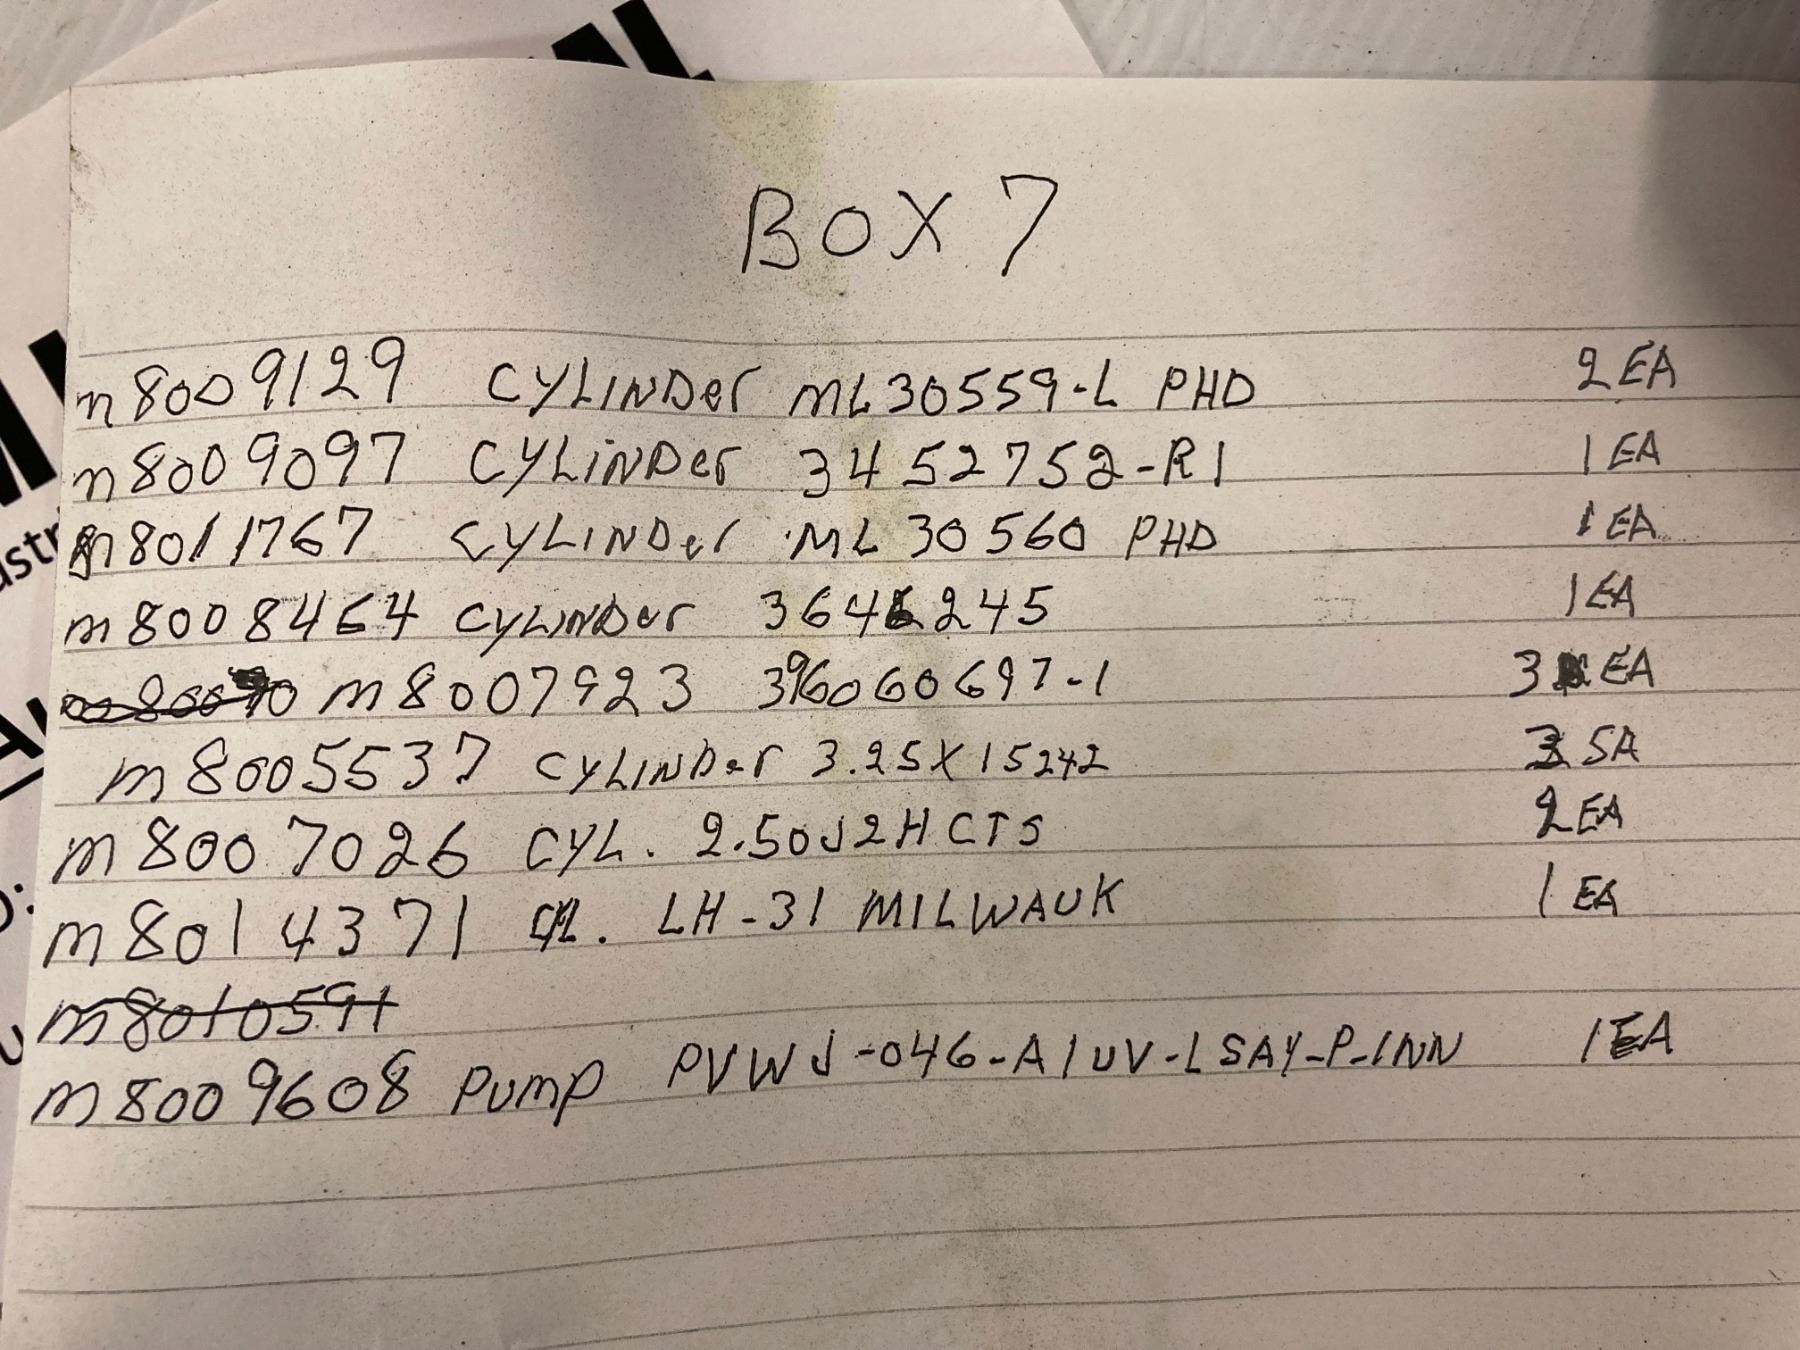 BOX 7
m8009129 CYLINDer ML30559-L PHD 2EA
m8009097 CYLiNDer 3452752-R1 1EA
m8011767 CYLINDer ML 30560 PHD 1EA
m8008464 CYLINDer 3646245 1EA
m8007923 396060697-1 3 EA
m8005537 CYLINDer 3.25X15242 3 SA
m8007026 CYL. 2.50J2HCTS 2EA
m8014371 CYL. LH-31 MILWAUK 1EA
m8010591
m8009608 PUMP PVWJ-046-A1UV-LSAY-P-1NN 1EA